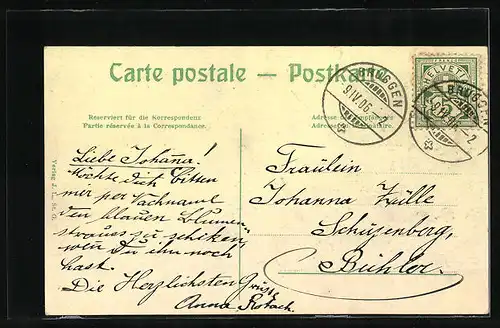 Carte postale — Postkarte
Reserviert für die Korrespondenz
Partie réservée à la Correspondance.
BRUGGEN
9.IV.06 - 2
HELVETIA
FRANCO
BRUGGEN
9.IV.06 - 2
Verlag J. L. St. G.
Liebe Johana!
Möchte dich bitten
mir per Nachnam
den blauen Blumen-
strauss zu schiken,
wen Du ihn noch
hast.
Die Herzlichsten Grüsse
Anna
Fräulein
Johanna Zülle
Schüzenberg,
Bühler.